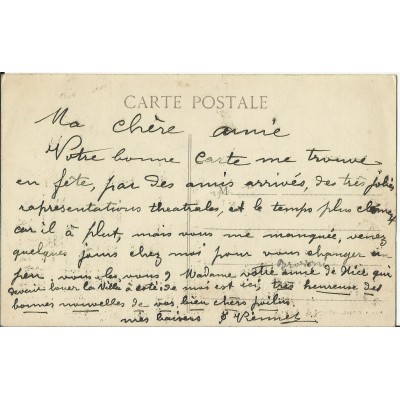 CARTE POSTALE
Ma chère amie
Votre bonne Carte me trouve
en fête, par des amis arrivés, des très jolies
représentations theatrales, et le temps plus
car il à plut, mais vous me manquée, venez
quelques jours chez moi pour vous changer un
peu vous-les-vous? Madame votre amie de Nice qui
devait louer la Villa à coté de moi est ici, très heureuse des
bonnes nouvelles de vos bien chers poilus.
mes baisers